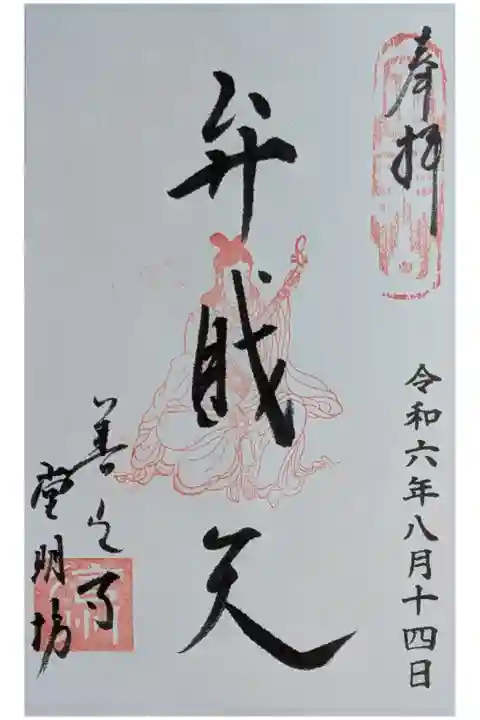 奉拝
令和六年八月十四日
弁財天
善光寺
堂明坊